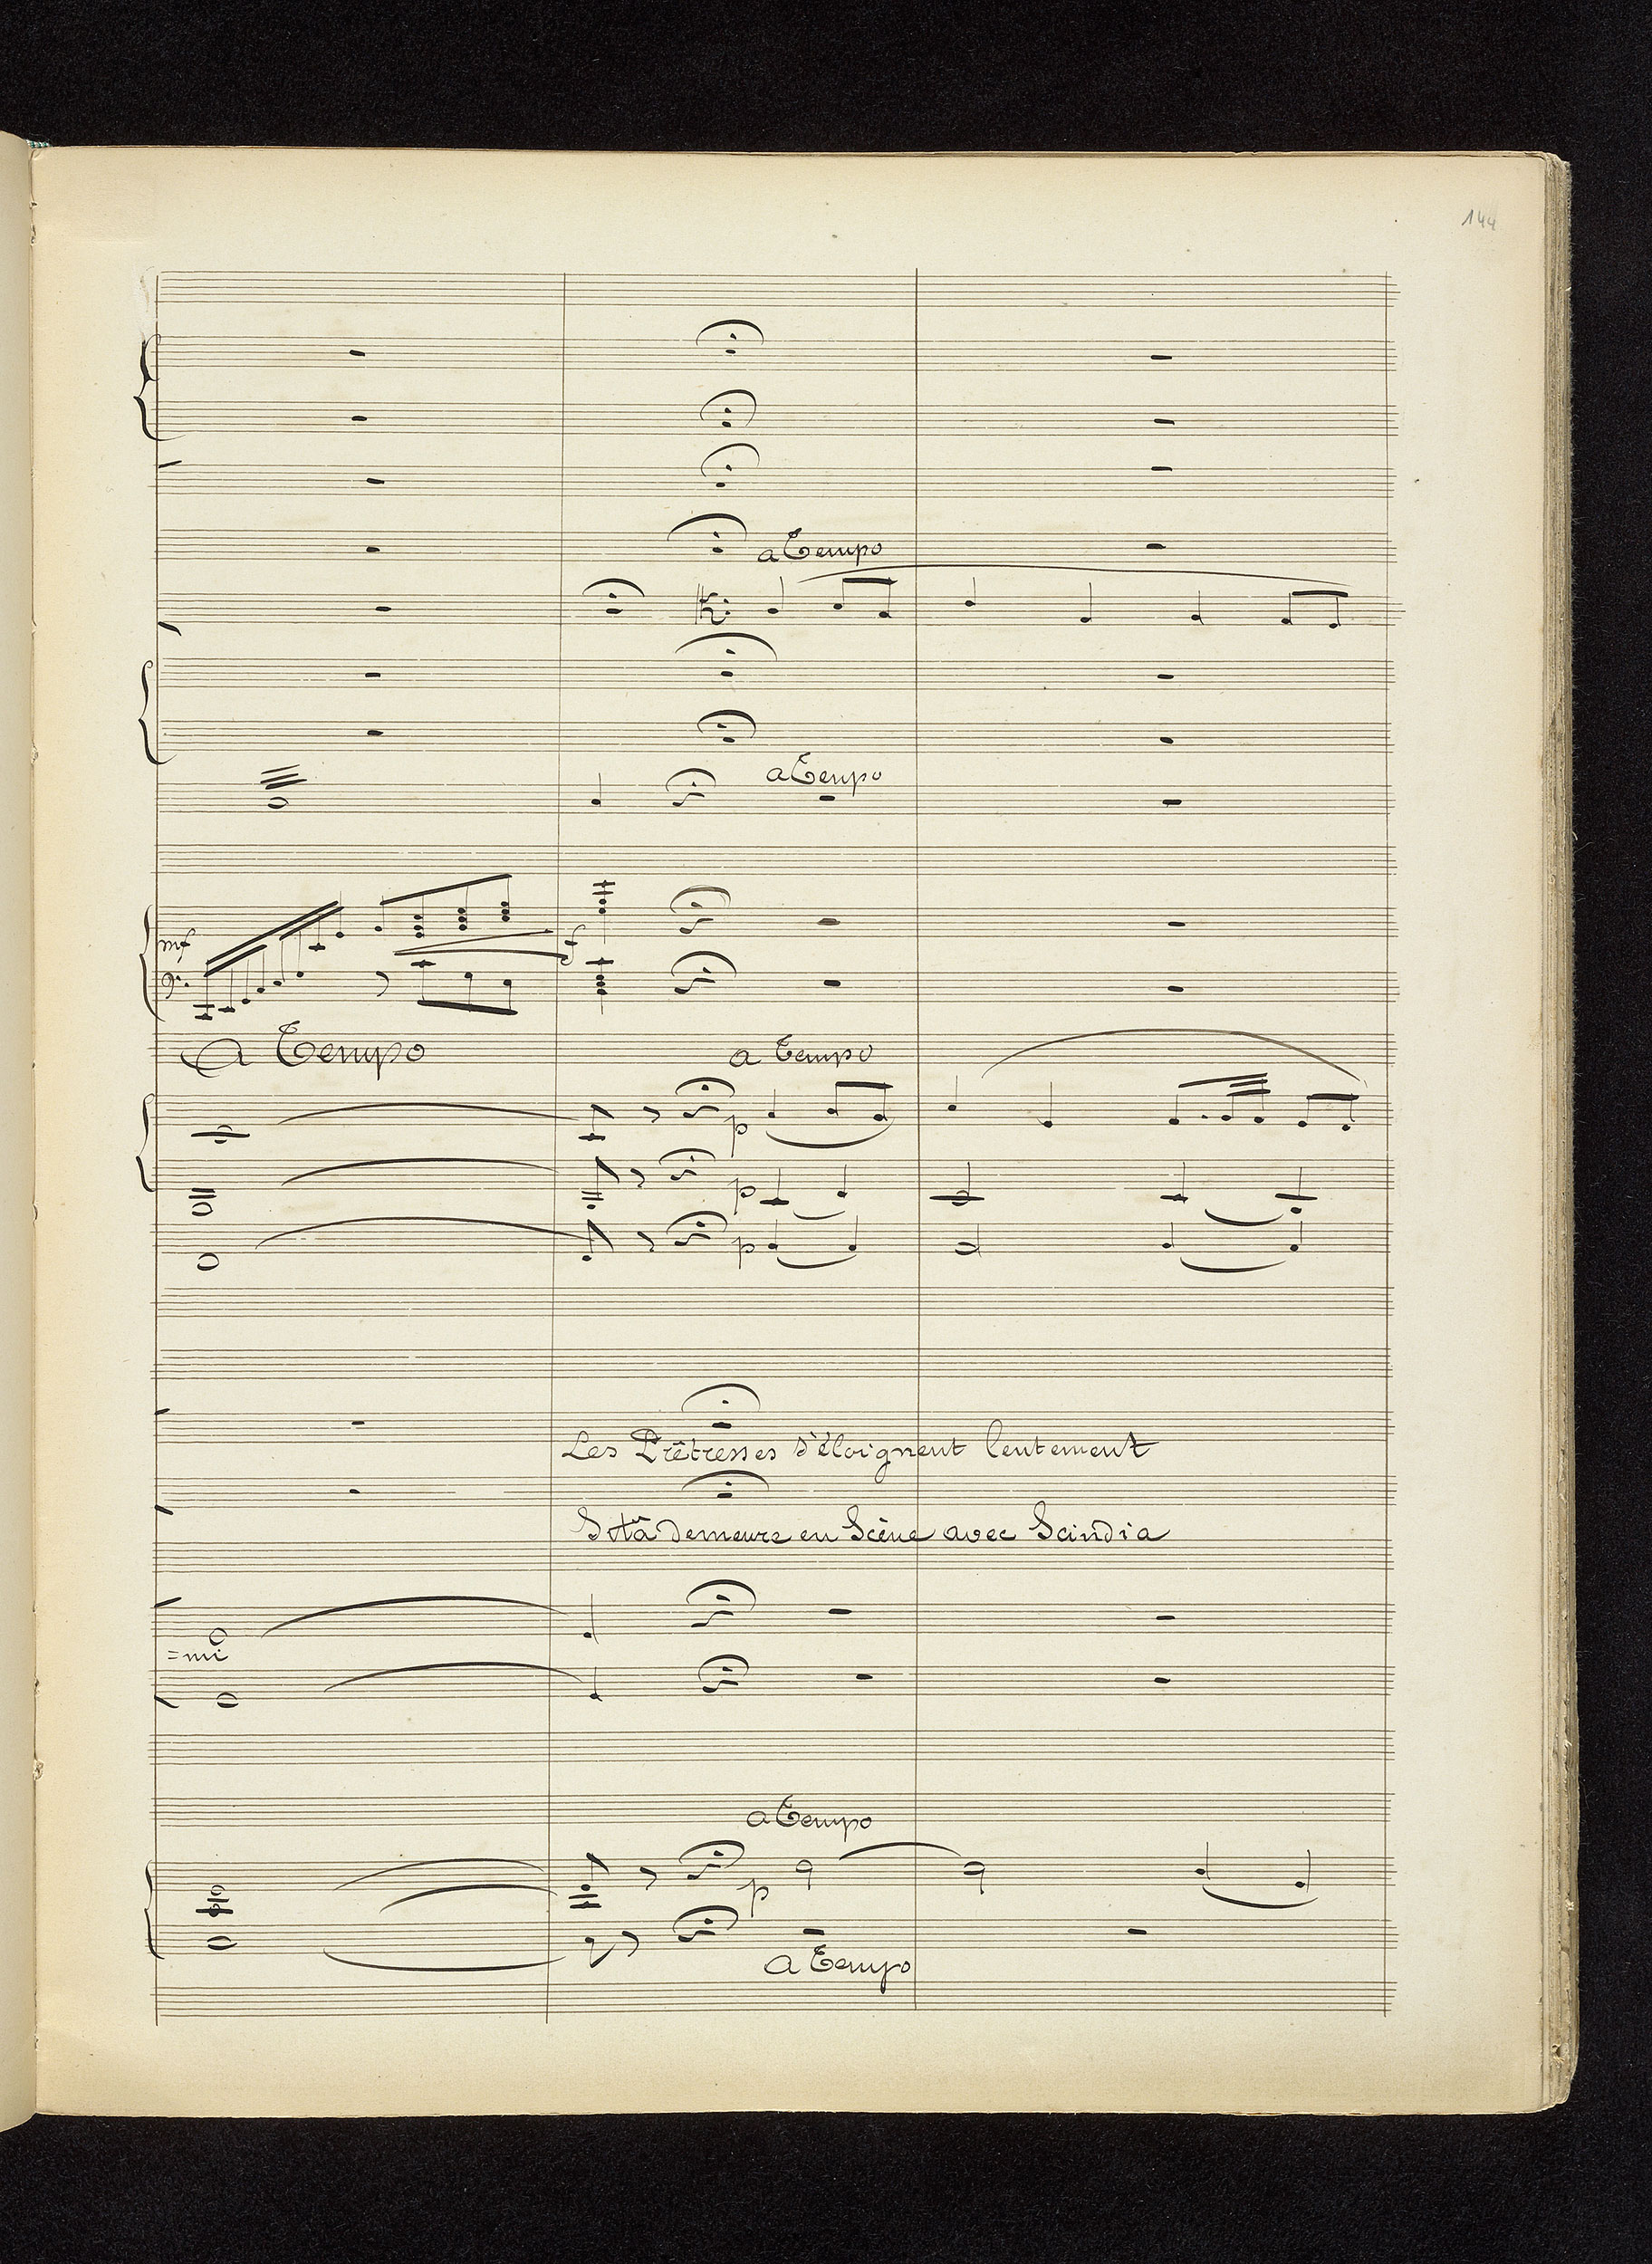 144
a Tempo
a Tempo
mf
f
a Tempo
a Tempo
p
p
p
Les Prêtresses s'éloignent lentement
Sitâ demeure en Scène avec Scindia
=mi
a Tempo
p
a Tempo